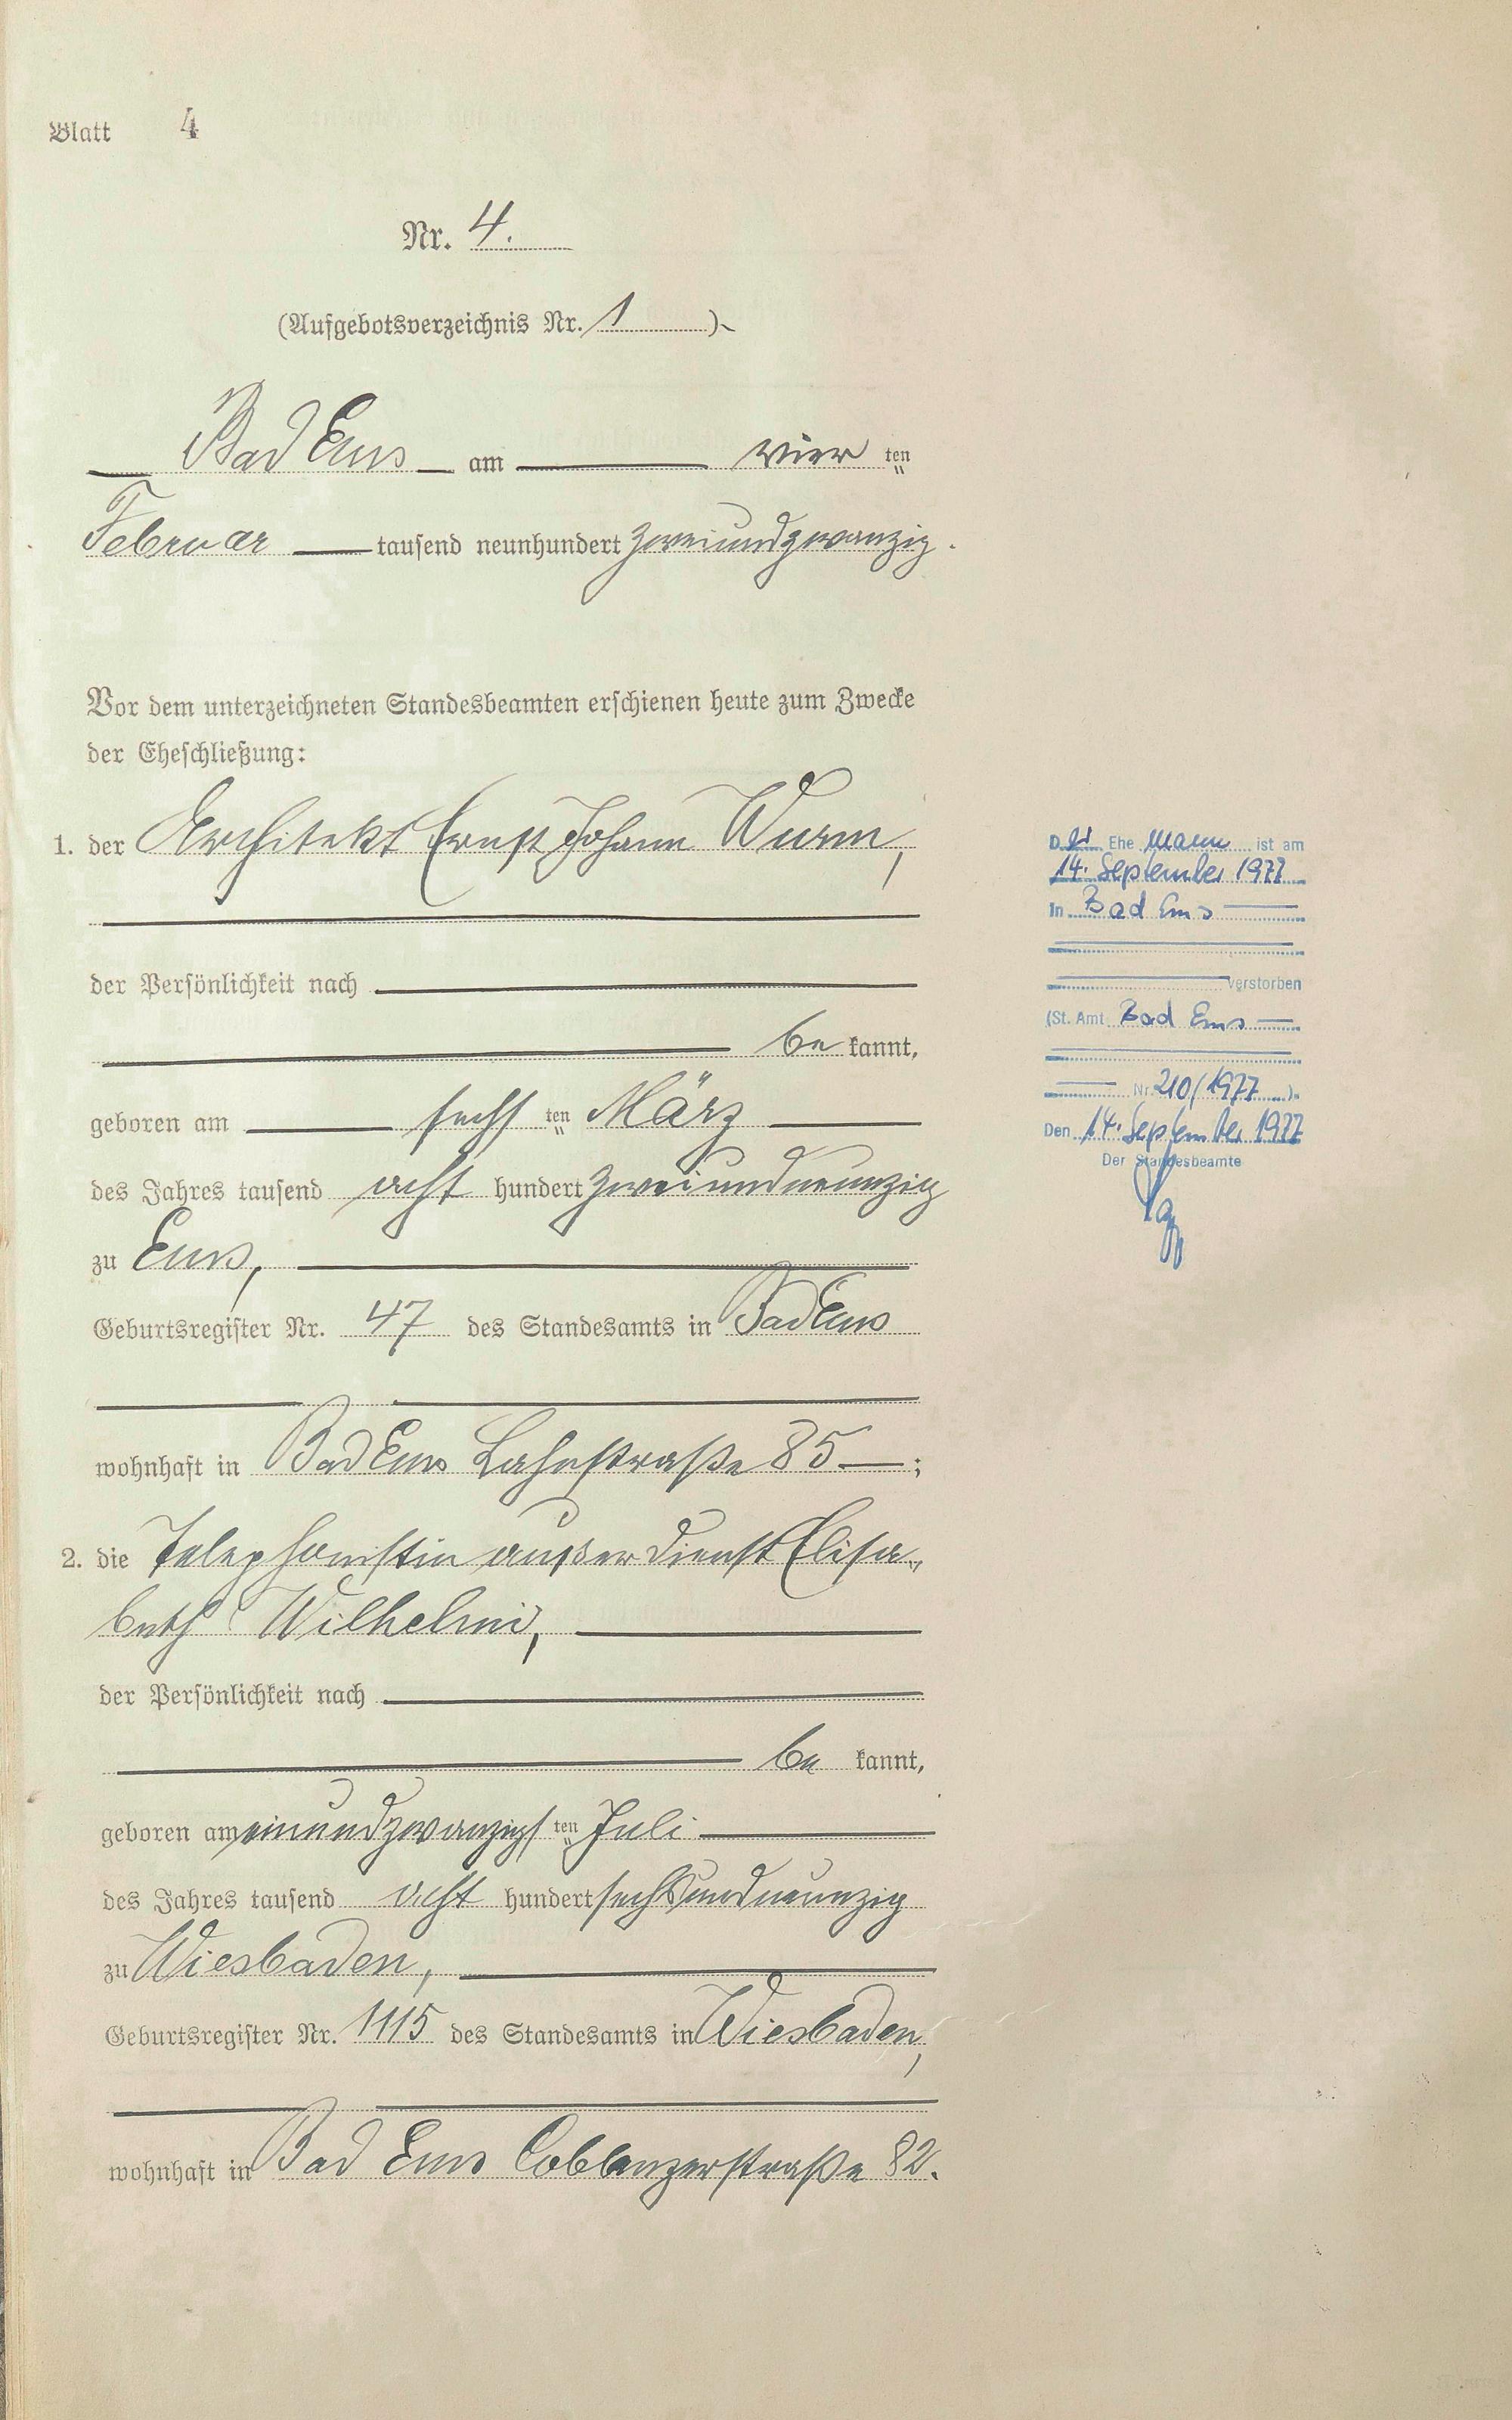 Blatt 4
Nr. 4.
(Aufgebotsverzeichnis Nr. 1 ).
Bad Ems am vier ten
Februar tausend neunhundert zweiundzwanzig.
Vor dem unterzeichneten Standesbeamten erschienen heute zum Zwecke
der Eheschließung:
1. der Architekt Ernst Johann Wurm,
der Persönlichkeit nach
be kannt,
geboren am sechs ten März
des Jahres tausend acht hundert zweiundneunzig
zu Ems,
Geburtsregister Nr. 47 des Standesamts in Bad Ems
wohnhaft in Bad Ems Lahnstraße 85 ;
2. die Telephonistin außer Dienst Elisa-
beth Wilhelmi,
der Persönlichkeit nach
be kannt,
geboren am einundzwanzigs ten Juli
des Jahres tausend acht hundert sechsundneunzig
zu Wiesbaden,
Geburtsregister Nr. 1115 des Standesamts in Wiesbaden,
wohnhaft in Bad Ems Coblenzerstraße 82.
D er Ehe mann ist am
14. September 1977
In Bad Ems
verstorben
(St. Amt Bad Ems
Nr. 210/1977 ).
Den 14. September 1977
Der Standesbeamte